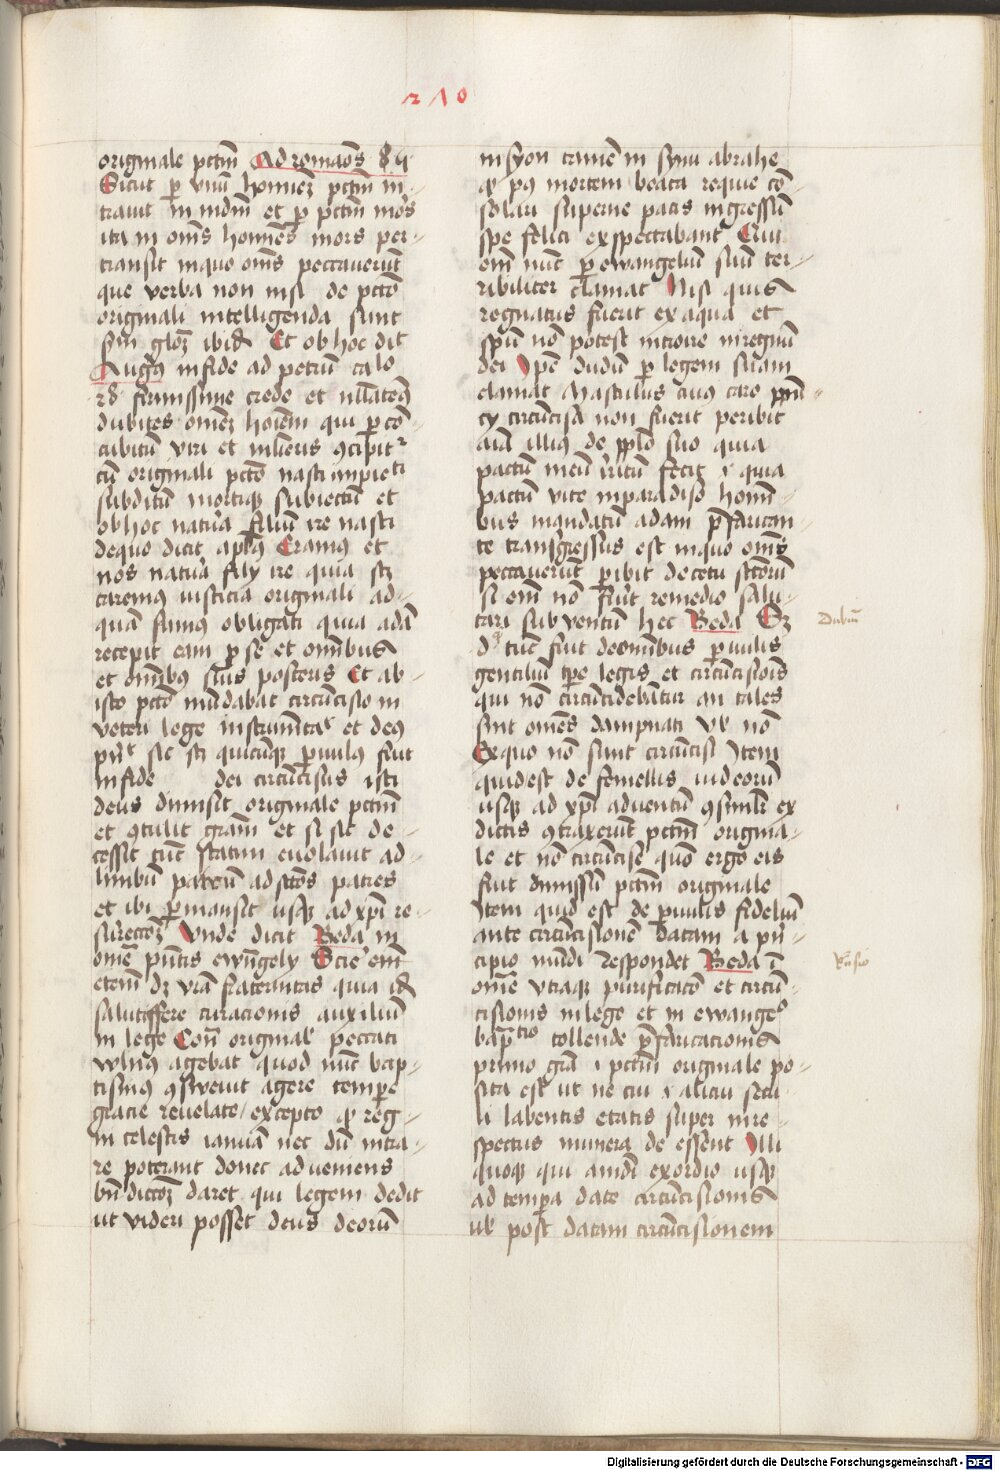 210
originale pctm Ad romaōs 8 4
Sicut p vnū hoīnez pctm in-
trauit in mdm et p pctm mors
ita in oms homēs mors per-
transit in quo oms peccauerūt
que verba non nisi de pctō
originali intelligenda sunt
scdm gloz ibid Et ob hoc dit
Augus in fide ad petrū
firmissime crede et nullateq
dubites omez hoiem qui p cō-
cubitū viri et mulieris ꝯcipit
cū originali pctō nasci impieti
subditū mortiqz subiectū et
ob hoc natūa filiū ire nasci
de quo dicit apls Eramus et
nos natūa filij ire quia scz
caremus iusticia originali ad
quā sumus obligati quia adā
recepit eam p se et omnibus
et omībus suis posteris Et ab
isto pctō mūdabat circūcisio in
veteri lege instrumētar et deus
prīr sic scz quicūqz puulus fuit
in fide dei circūcisus isti
deus dimisit originale pctm
et ꝯtulit grām et si sic de-
cessit tūc statim euolauit ad
limbū patrū ad sctōs patres
et ibi pmansit usqz ad xpi re-
surectōz Vnde dicit Beda in
omē pūtis ewāgely Scire em
etem dz vrā fraternitas quia id
salutiffere curacionis auxiliū
in lege Conͣ originalˢ peccati
wlnus agebat quod nūc bap-
tismus ꝯsweuit agere tempe
gracie reuelate / excepto qd reg-
ni celestis ianuā nec dū intra-
re poterant donec adueniens
bn̄dictōz daret qui legem dedit
ut videri posset deus deorū
in syon tamē in synu abrahe
qd pꝰ mortem beata requie cō-
solari superne pacis ingressū
spe felici exspectabant Qui
em nūc p ewangeliū suū ter-
ribiliter clamat Nisi quis
regnatus fuerit ex aqua et
spū nō potest intioire in regnū
dei Ipē dudū p legem suam
clamat Masculus cuius caro ppuu-
cy circūcisa non fuerit peribit
aīa illius de pplo suo quia
pactū meū irritū fecit i quia
pactū vite in paradiso homī-
bus mandatū adam pfarican-
te transgressus est in quo oms
peccauerūt peribit de cetu sctōrū
si em nō fuit remedio salu-
tari subuentum hec Beda Sz
qd tūc fuit de omībus puulis
gentiliū tpe legis et circūcisiōis
qui nō circūcidebātur an tales
sint omēs dampnati vl nō
Ex quo nō sunt circūcisi Item
quid est de femellis iudeorū
usqz ad xpi aduentū ꝯsimilr ex
dictis ꝯtraxerūt pctm origina-
le et nō circūcise quō ergo eis
fuit dimissū pctm originale
Item quid est de puulis fideliū
ante circūcisionē datam a prī-
cipio mūdi Respondet Beda ī
omē vtiaqz purificatō et circū-
cisionis in lege et in ewangel
baptio tollende pfaricacionis
primo grā i pctm originale po-
sita est ut ne cui i alicui secu-
li labentis etatis superne re-
spectus munera de essent Illi
quoqz qui a mdi exordio usqz
ad tempa date circūcisionis
ul post datam circūcisionem
Dubiū
Rn̄sio
Digitalisierung gefördert durch die Deutsche Forschungsgemeinschaft - DFG